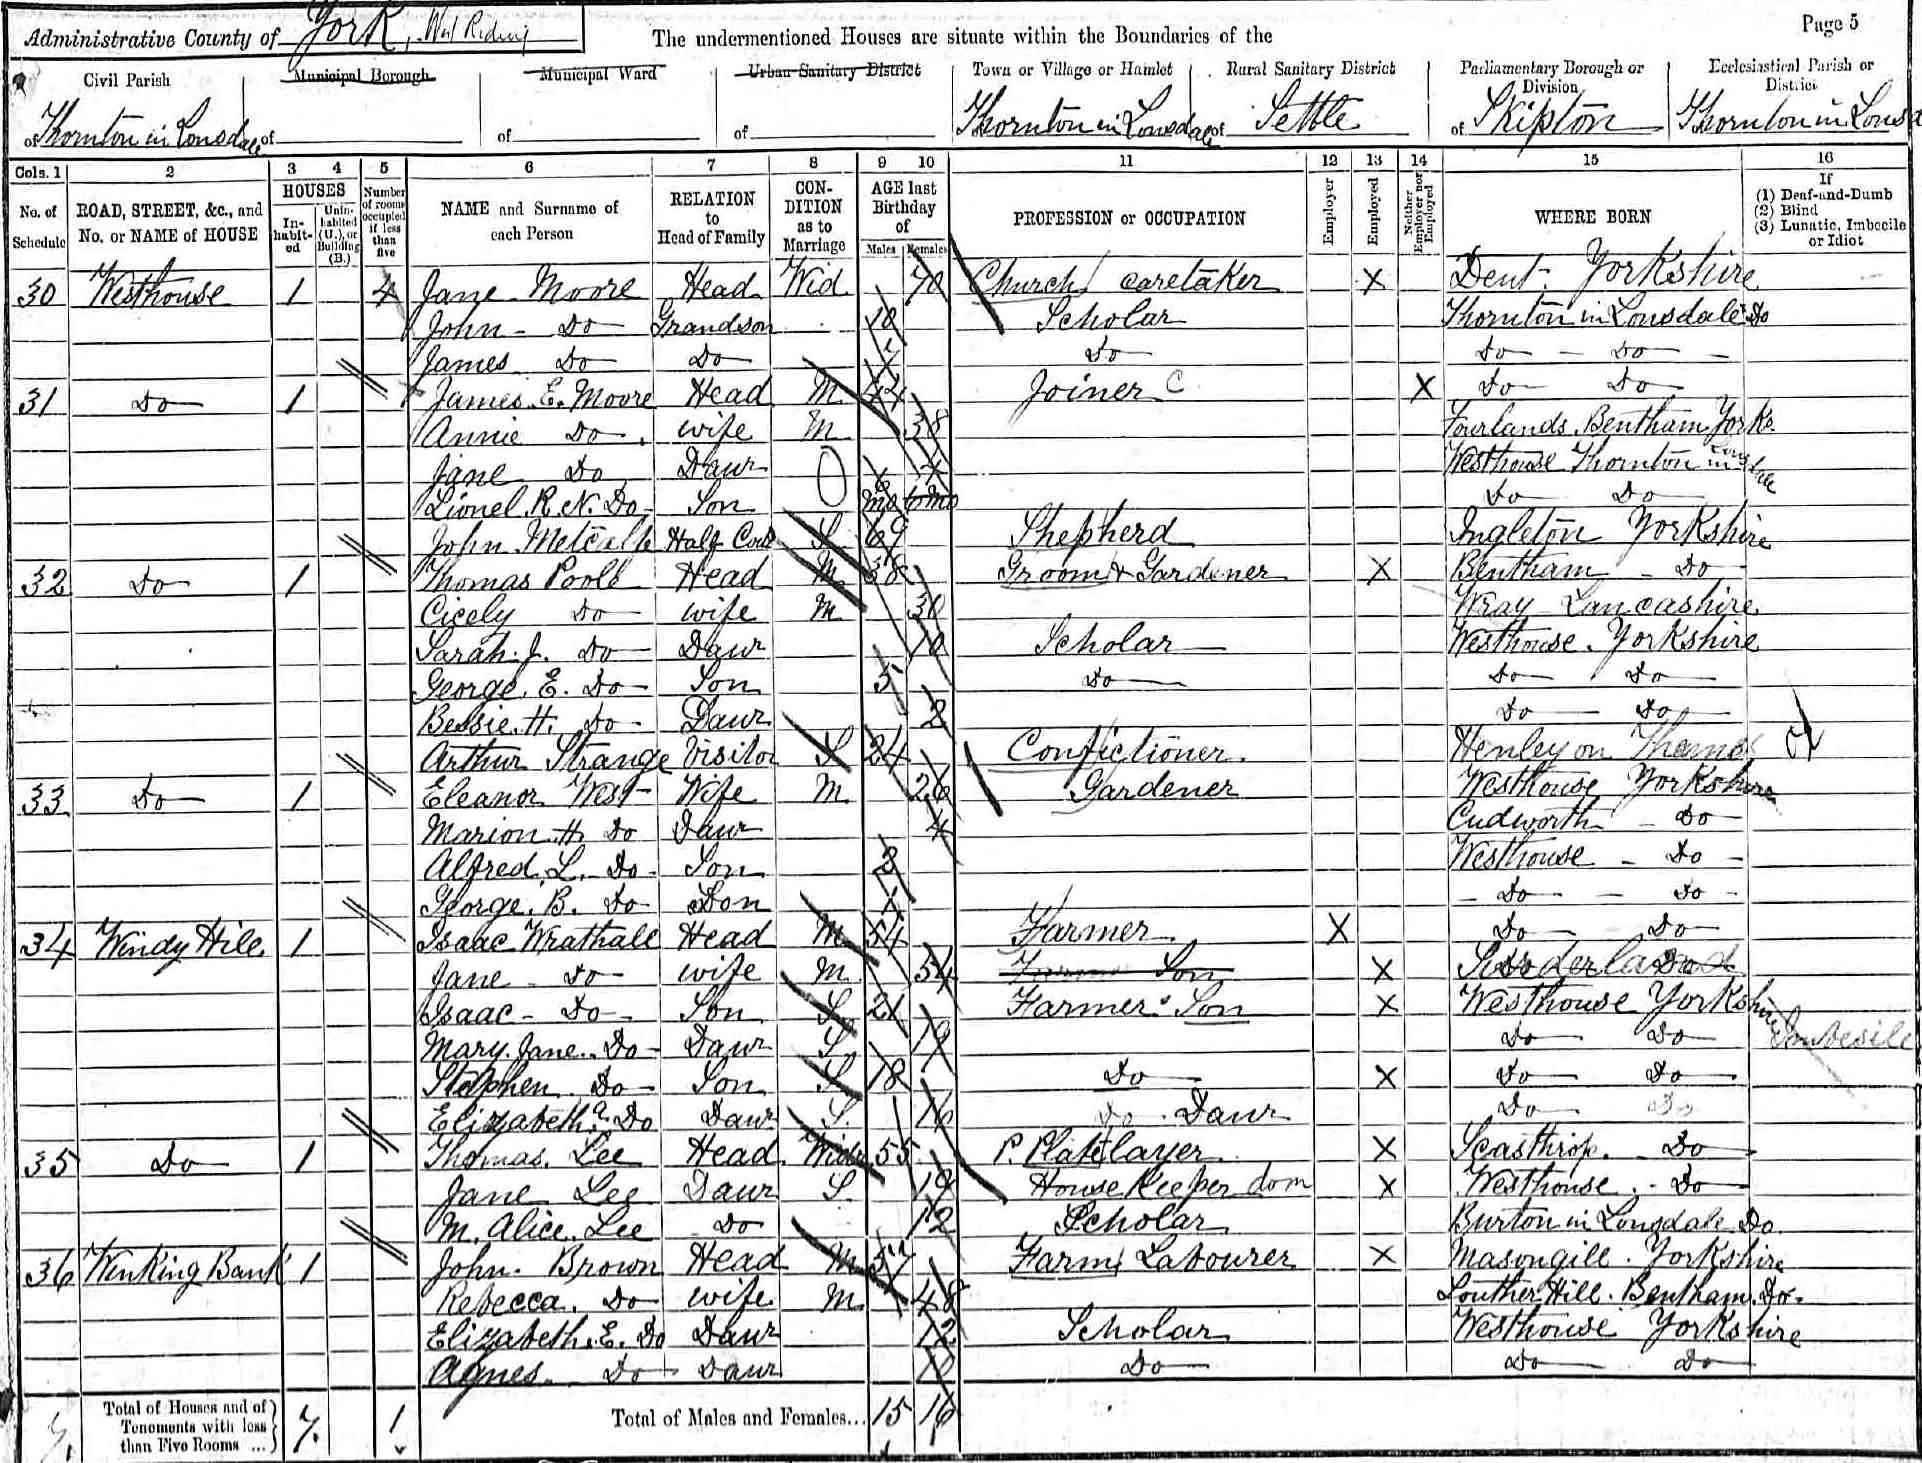 Administrative County of York, West Riding The undermentioned Houses are situate within the Boundaries of the Page 5
Civil Parish Municipal Borough Municipal Ward Urban Sanitary District Town or Village or Hamlet Rural Sanitary District Parliamentary Borough or Division Ecclesiastical Parish or District
of Thornton in Lonsdale of of of Thornton in Lonsdale of Settle of Skipton Thornton in Lonsd
Cols. 1 2 3 4 5 6 7 8 9 10 11 12 13 14 15 16
No. of Schedule ROAD, STREET, &c., and No. or NAME of HOUSE HOUSES In-habit-ed Unin-habited (U.), or Building (B.) Number of rooms occupied if less than five NAME and Surname of each Person RELATION to Head of Family CON-DITION as to Marriage AGE last Birthday of Males Females PROFESSION or OCCUPATION Employer Employed Neither Employer nor Employed WHERE BORN If (1) Deaf-and-Dumb (2) Blind (3) Lunatic, Imbecile or Idiot
30 Westhouse 1 4 Jane Moore Head Wid 70 Church caretaker X Dent Yorkshire
John Do Grandson 10 Scholar Thornton in Lonsdale Do
James Do Do Do Do Do
31 Do 1 James E. Moore Head M 44 Joiner C X Do Do
Annie Do wife M 38 Fourlands Bentham Yorks
Jane Do Daur Westhouse Thornton in Lonsdale
Lionel R. N. Do Son 6 mo 6 mo Do Do
John Metcalfe Half Cous S 69 Shepherd Ingleton Yorkshire
32 Do 1 Thomas Poole Head M 38 Groom & Gardener X Bentham Do
Cicely Do wife M 30 Wray Lancashire
Sarah J. Do Daur 10 Scholar Westhouse Yorkshire
George E. Do Son 5 Do Do Do
Bessie H. Do Daur 2 Do Do
Arthur Strange Visitor S 24 Confictioner Henley on Thames
33 Do 1 Eleanor West Wife M 26 Gardener Westhouse Yorkshire
Marion H. Do Daur 4 Cudworth Do
Alfred L. Do Son 2 Westhouse Do
George B. Do Son Do Do
34 Windy Hill 1 Isaac Wrathall Head M 54 Farmer X Do Do
Jane Do wife M 54 Son X
Isaac Do Son S 21 Farmer's Son X Westhouse Yorkshire
Mary Jane Do Daur S 19 Do Do Imbesile
Stephen Do Son S 18 Do X Do Do
Elizabeth a. Do Daur S 16 Do Daur Do Do
35 Do 1 Thomas Lee Head Widr 55 P. Platelayer X Scasthrop Do
Jane Lee Daur S. 19 House Keeper dom X Westhouse Do
M. Alice Lee Do 12 Scholar Burton in Lonsdale Do
36 Wenking Bank 1 John Brown Head M 57 Farm Labourer X Masongill Yorkshire
Rebecca Do wife M 48 Louther Hill Bentham Do
Elizabeth E. Do Daur 12 Scholar Westhouse Yorkshire
Agnes Do Daur 10 Do Do Do
7. Total of Houses and of Tenements with less than Five Rooms ... 7. 1 Total of Males and Females... 15 16